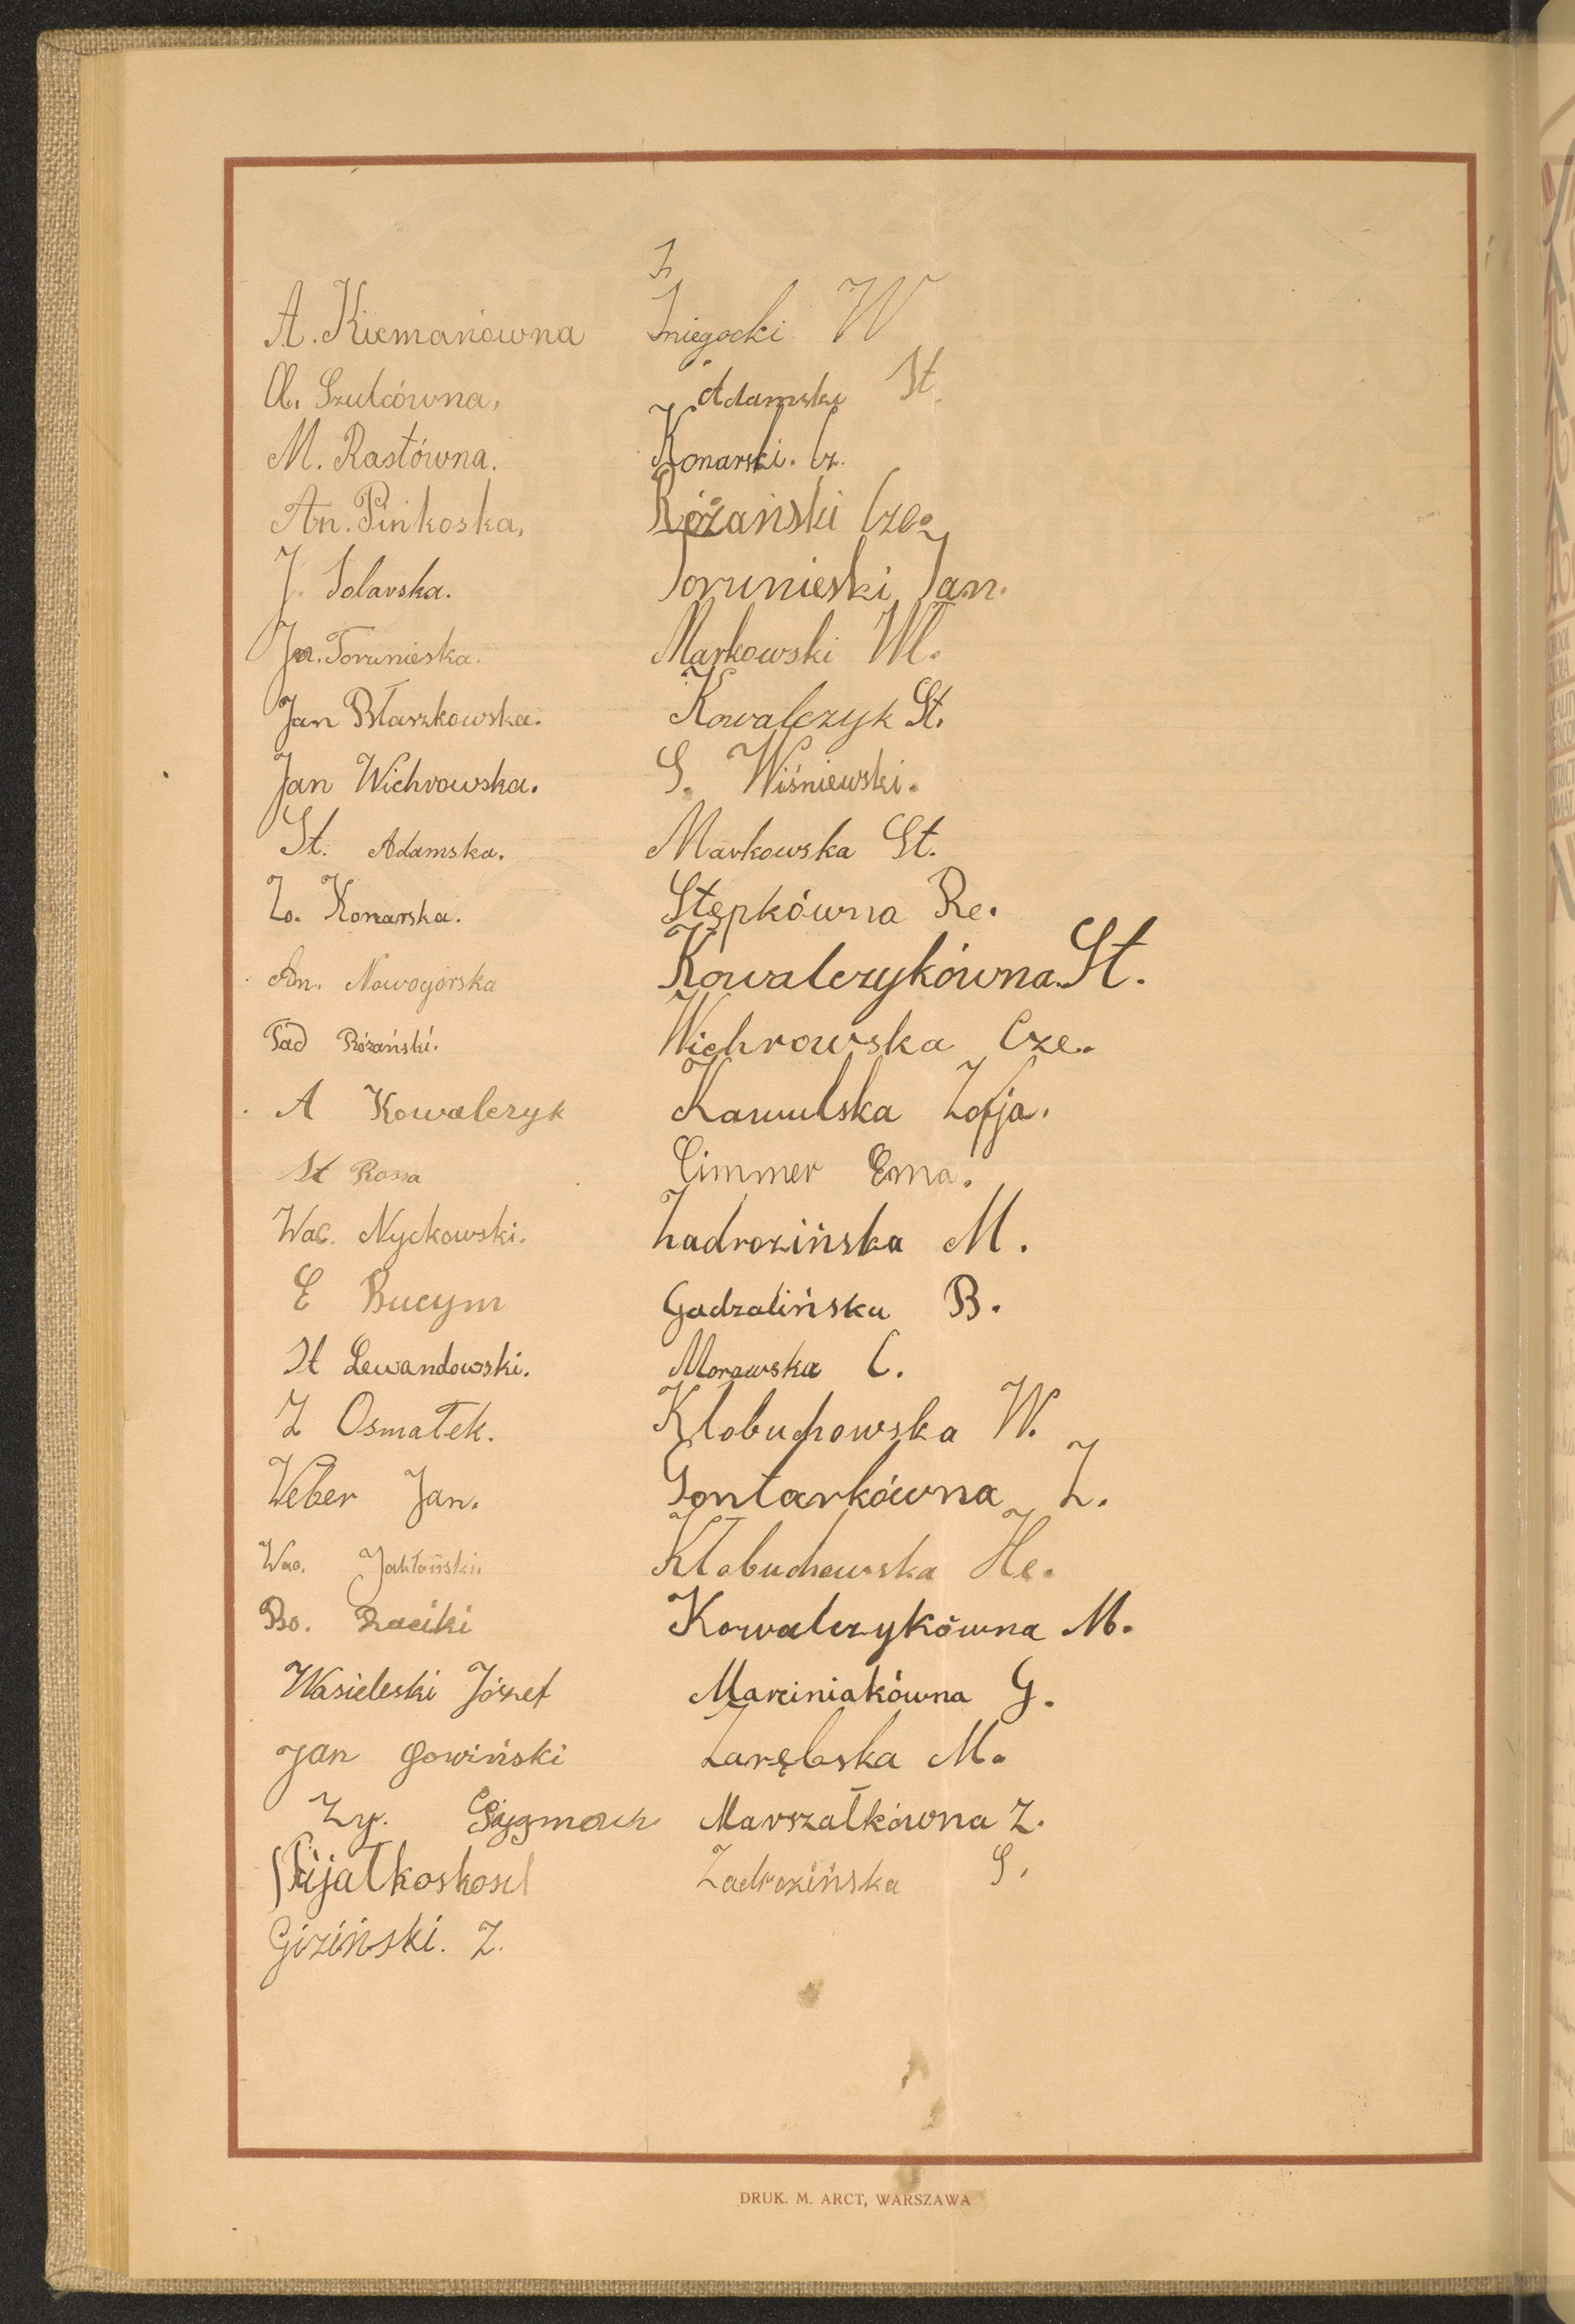 A. Kiemanówna
A. Szulcówna,
M. Rastówna.
An. Pinkoska,
J. Solarska.
Ja. Torunieska.
Jan Błaszkowska.
Jan Wichrowska.
St. Adamska.
Zo. Konarska.
An. Nowogórska
Tad Różański.
A Kowalczyk
St Rossa
Wac. Nyckowski.
E Bucym
St Lewandowski.
Z Osmałek.
Weber Jan.
Wac. Jabłański.
Bo. Raciki
Wasieleski Józef
Jan Gowiński
Zy.
Giziński. Z.
Śniegocki W
Adamski St.
Konarski. Cz.
Różański Cze.
Torunieski Jan.
Markowski Wł.
Kowalczyk St.
S. Wiśniewski.
Markowska St.
Stępkówna Re.
Kowalczykówna St.
Wichrowska Cze..
Kamulska Zofja.
Cimmer Ema.
Zadrozińska M.
Gadzalińska B.
Morawska C.
Kłobuchowska W.
Gontarkówna Z.
Kłobuchowska He.
Kowalczykówna M.
Marciniakówna G.
Zarębska M.
Marszałkówna Z.
Zadrozińska S.
DRUK. M. ARCT, WARSZAWA